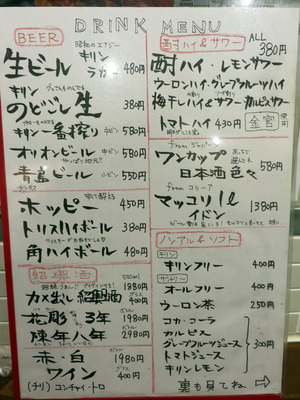 DRINK MENU
BEER
生ビール キリンラガー 480円
キリン
のどごし生 380円
キリン一番搾り 中ビン 580円
オリオンビール 中ビン 550円
青島ビール 550円
ホッピー 450円
トリスハイボール 380円
角ハイボール 480円
紹興酒
カメ出し紹興酒 グラス 400円
花彫 3年 1980円
陳年八年 2980円
赤・白 1980円
ワイン グラス 400円
(チリ) コンチャイ・トロ
酎ハイ&サワー ALL 380円
酎ハイ・レモンサワー
ウーロンハイ・グレープフルーツハイ
梅干しハイ&サワー・カルピスサワー
トマトハイ 430円 金宮 使用
from ジャパン
ワンカップ
日本酒色々 580円
from コリーア
マッコリ 1ℓ
イドン 1380円
ノンアル&ソフト
キリン
キリンフリー 400円
サントリー
オールフリー 400円
ウーロン茶 250円
コカ・コーラ
カルピス
グレープフルーツジュース 300円
トマトジュース
キリンレモン
裏も見てね